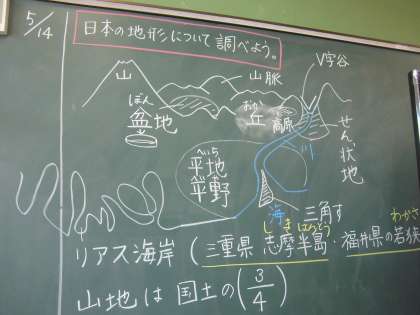 5/14
日本の地形について調べよう。
山
山脈
V字谷
ぼん
盆地
おか
丘
高原
川
せん状地
へいち
平地
平野
海
三角す
しまはんとう
わかさ
リアス海岸(三重県 志摩半島・福井県の若狭
山地は国土の(3/4)